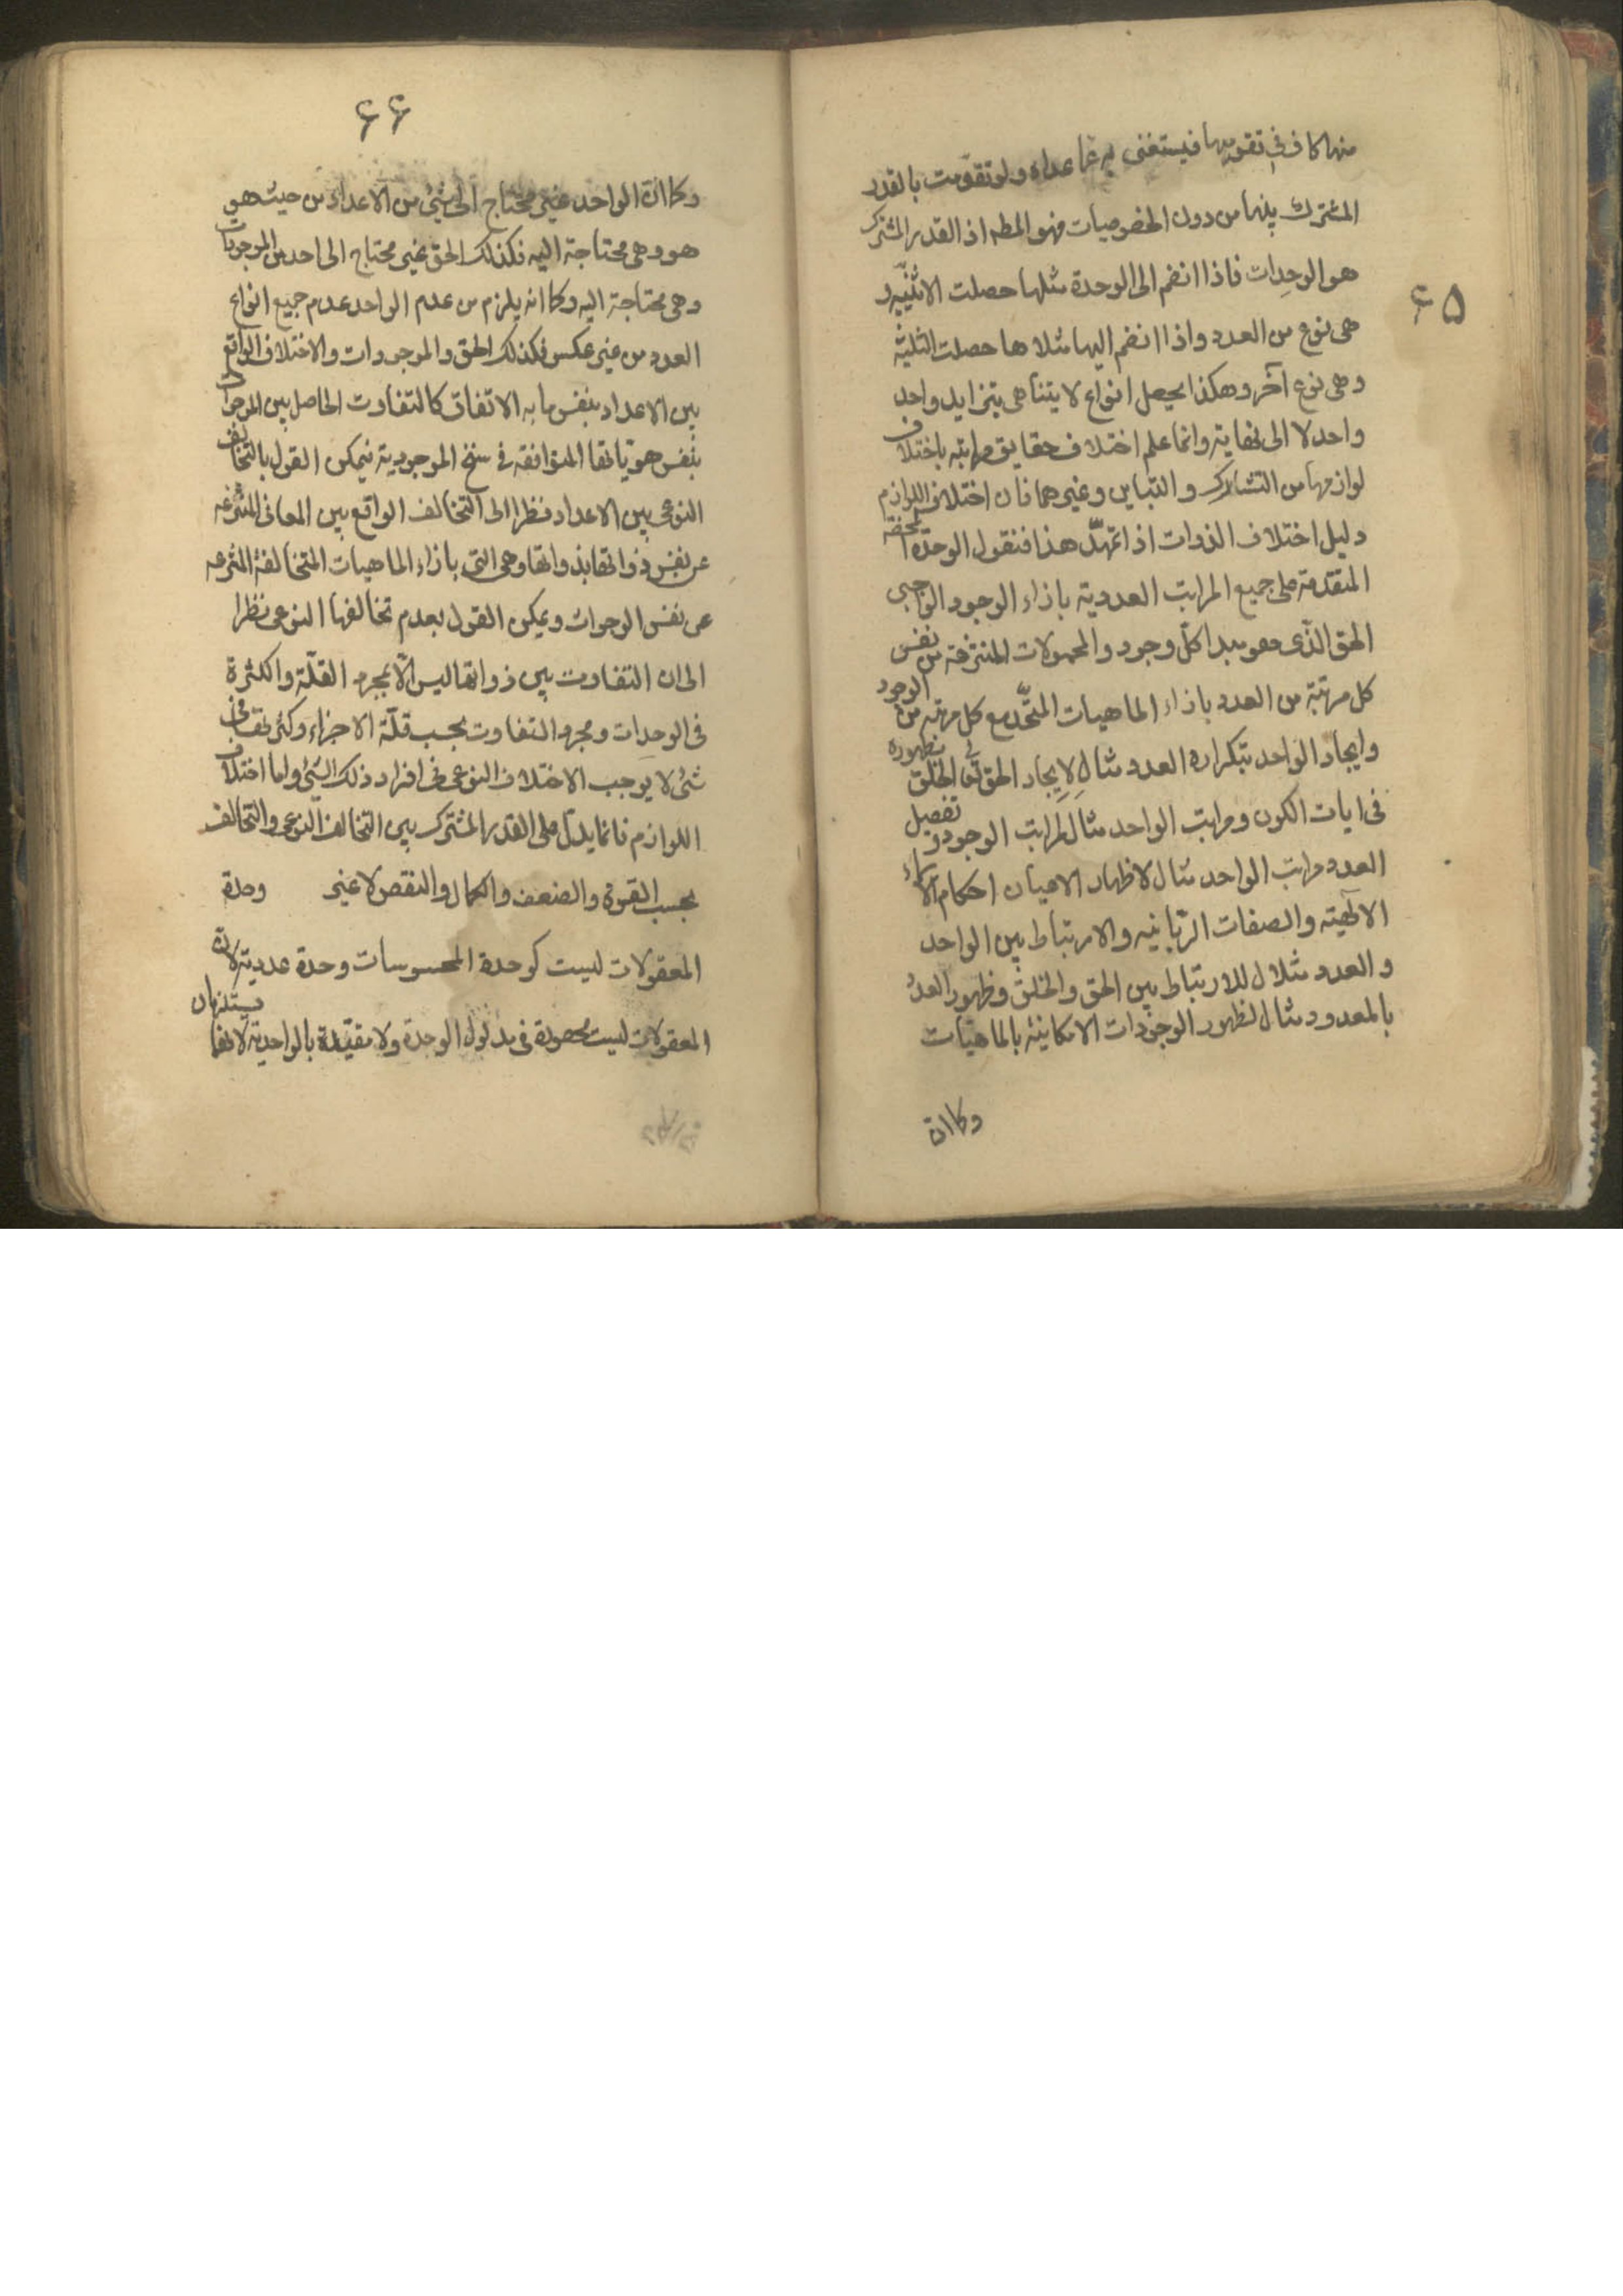 ۶۵
منها كاف في تقويمها فيستغنى به عما عداه ولو تقومت بالقدر
المشترك بينها من دون الخصوصيات فهو المط اذ القدر المشترك
هو الوحدات فاذا انضم الى الوحدة مثلها حصلت الاثنينيه و
هى نوع من العدد واذا انضم اليها مثلا ها حصلت الثلثية
وهى نوع آخر وهكذا يحصل انواع لا يتناهى بتزايد واحد
واحد لا الى نهاية وانما علم اختلاف حقايق مراتبه باختلاف
لوازمها من التشارك والتباين وغيرهما فان اختلاف اللوازم
دليل اختلاف الذوات اذا تمهّد هذا فنقول الوحدة المحضة
المتقدمة على جميع المراتب العددية بازاء الوجود الواجبى
الحق الّذى هو مبدا كلّ وجود والمحمولات المنتزعة من نفس
كل مرتبة من العدد بازاء الماهيات المتّحد مع كل مرتبه من الوجود
وايجاد الواحد بتكراره العدد مثال لايجاد الحق تعالى الخلق بظهوره
فى ايات الكون ومراتب الواحد مثال لمراتب الوجود و تفصيل
العدد مراتب الواحد مثال لاظهار الاعيان احكام الاسماء
الالٰهيّه والصفات الرّبانيه والارتباط بين الواحد
والعدد مثلا ل للارتباط بين الحق والخلق وظهور العدد
بالمعدود مثال لظهور الوجودات الامكانيّه بالماهيّات
وكما ان
۶۶
وكما ان الواحد غير محتاج الى شئ من الاعداد من حيث هو
هو وهى محتاجة اليه فكذلك الحق غير محتاج الى احد من الموجودات
وهى محتاجة اليه وكما انه يلزم من عدم الواحد عدم جميع انواع
العدد من غير عكس فكذلك الحق والموجودات والاختلاف الواقع
بين الاعداد بنفس ما به الاتفاق كالتفاوت الحاصل بين الموجودات
بنفس هوياتها المتوافقه فى سنخ الموجودية فيمكن القول بالتخالف
النوعى بين الاعداد نظرا الى التخالف الواقع بين المعانى المنتزعه
عن نفس ذواتها بذواتها وهى التى بازاء الماهيات المتخالفة المنتزعه
عن نفس الوجودات ويمكن القول بعدم تخالفها النوعى نظرا
الى ان التفاوت بين ذواتها ليس الّا بمجرد القلّة والكثرة
فى الوحدات ومجرد التفاوت بحسب قلّة الاجزاء وكثرتها فى
شئ لا يوجب الاختلاف النوعى فى افراد ذلك الشئ واما اختلاف
اللوازم فانما يدلّ على القدر المشترك بين التخالف النوعى والتخالف
بحسب القوة والضعف والكمال والنقص لا غير وحدة
المعقولات ليست كوحدة المحسوسات وحدة عددية لان
المعقولات ليست محصورة فى مدلول الوحدة ولا مقيّدة بالواحدية لانهما يستلزمان